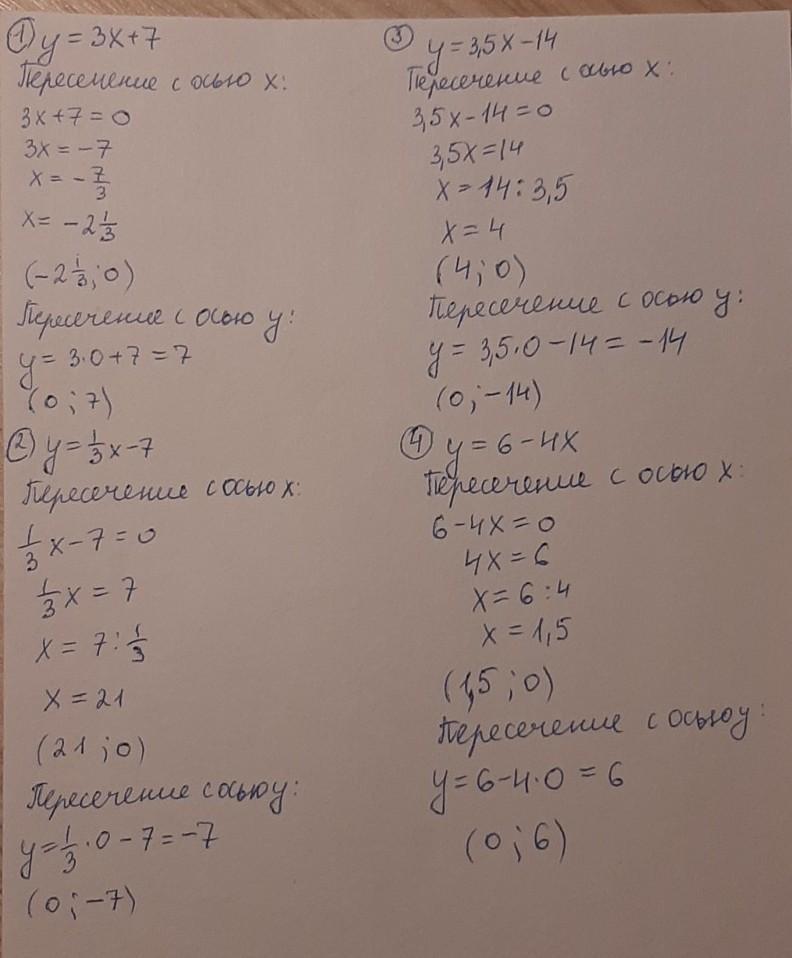 ① y = 3x+7
Пересечение с осью x:
3x+7=0
3x = -7
x = -7/3
x = -2 1/3
(-2 1/3; 0)
Пересечение с осью y:
y = 3·0+7 = 7
(0; 7)
② y = 1/3x-7
Пересечение с осью x:
1/3x-7=0
1/3x = 7
x = 7:1/3
x = 21
(21; 0)
Пересечение с осью y:
y = 1/3·0-7=-7
(0; -7)
③ y = 3,5x-14
Пересечение с осью x:
3,5x-14=0
3,5x=14
x = 14:3,5
x = 4
(4; 0)
Пересечение с осью y:
y = 3,5·0-14 = -14
(0; -14)
④ y = 6-4x
Пересечение с осью x:
6-4x=0
4x = 6
x = 6:4
x = 1,5
(1,5; 0)
Пересечение с осью y:
y = 6-4·0 = 6
(0; 6)